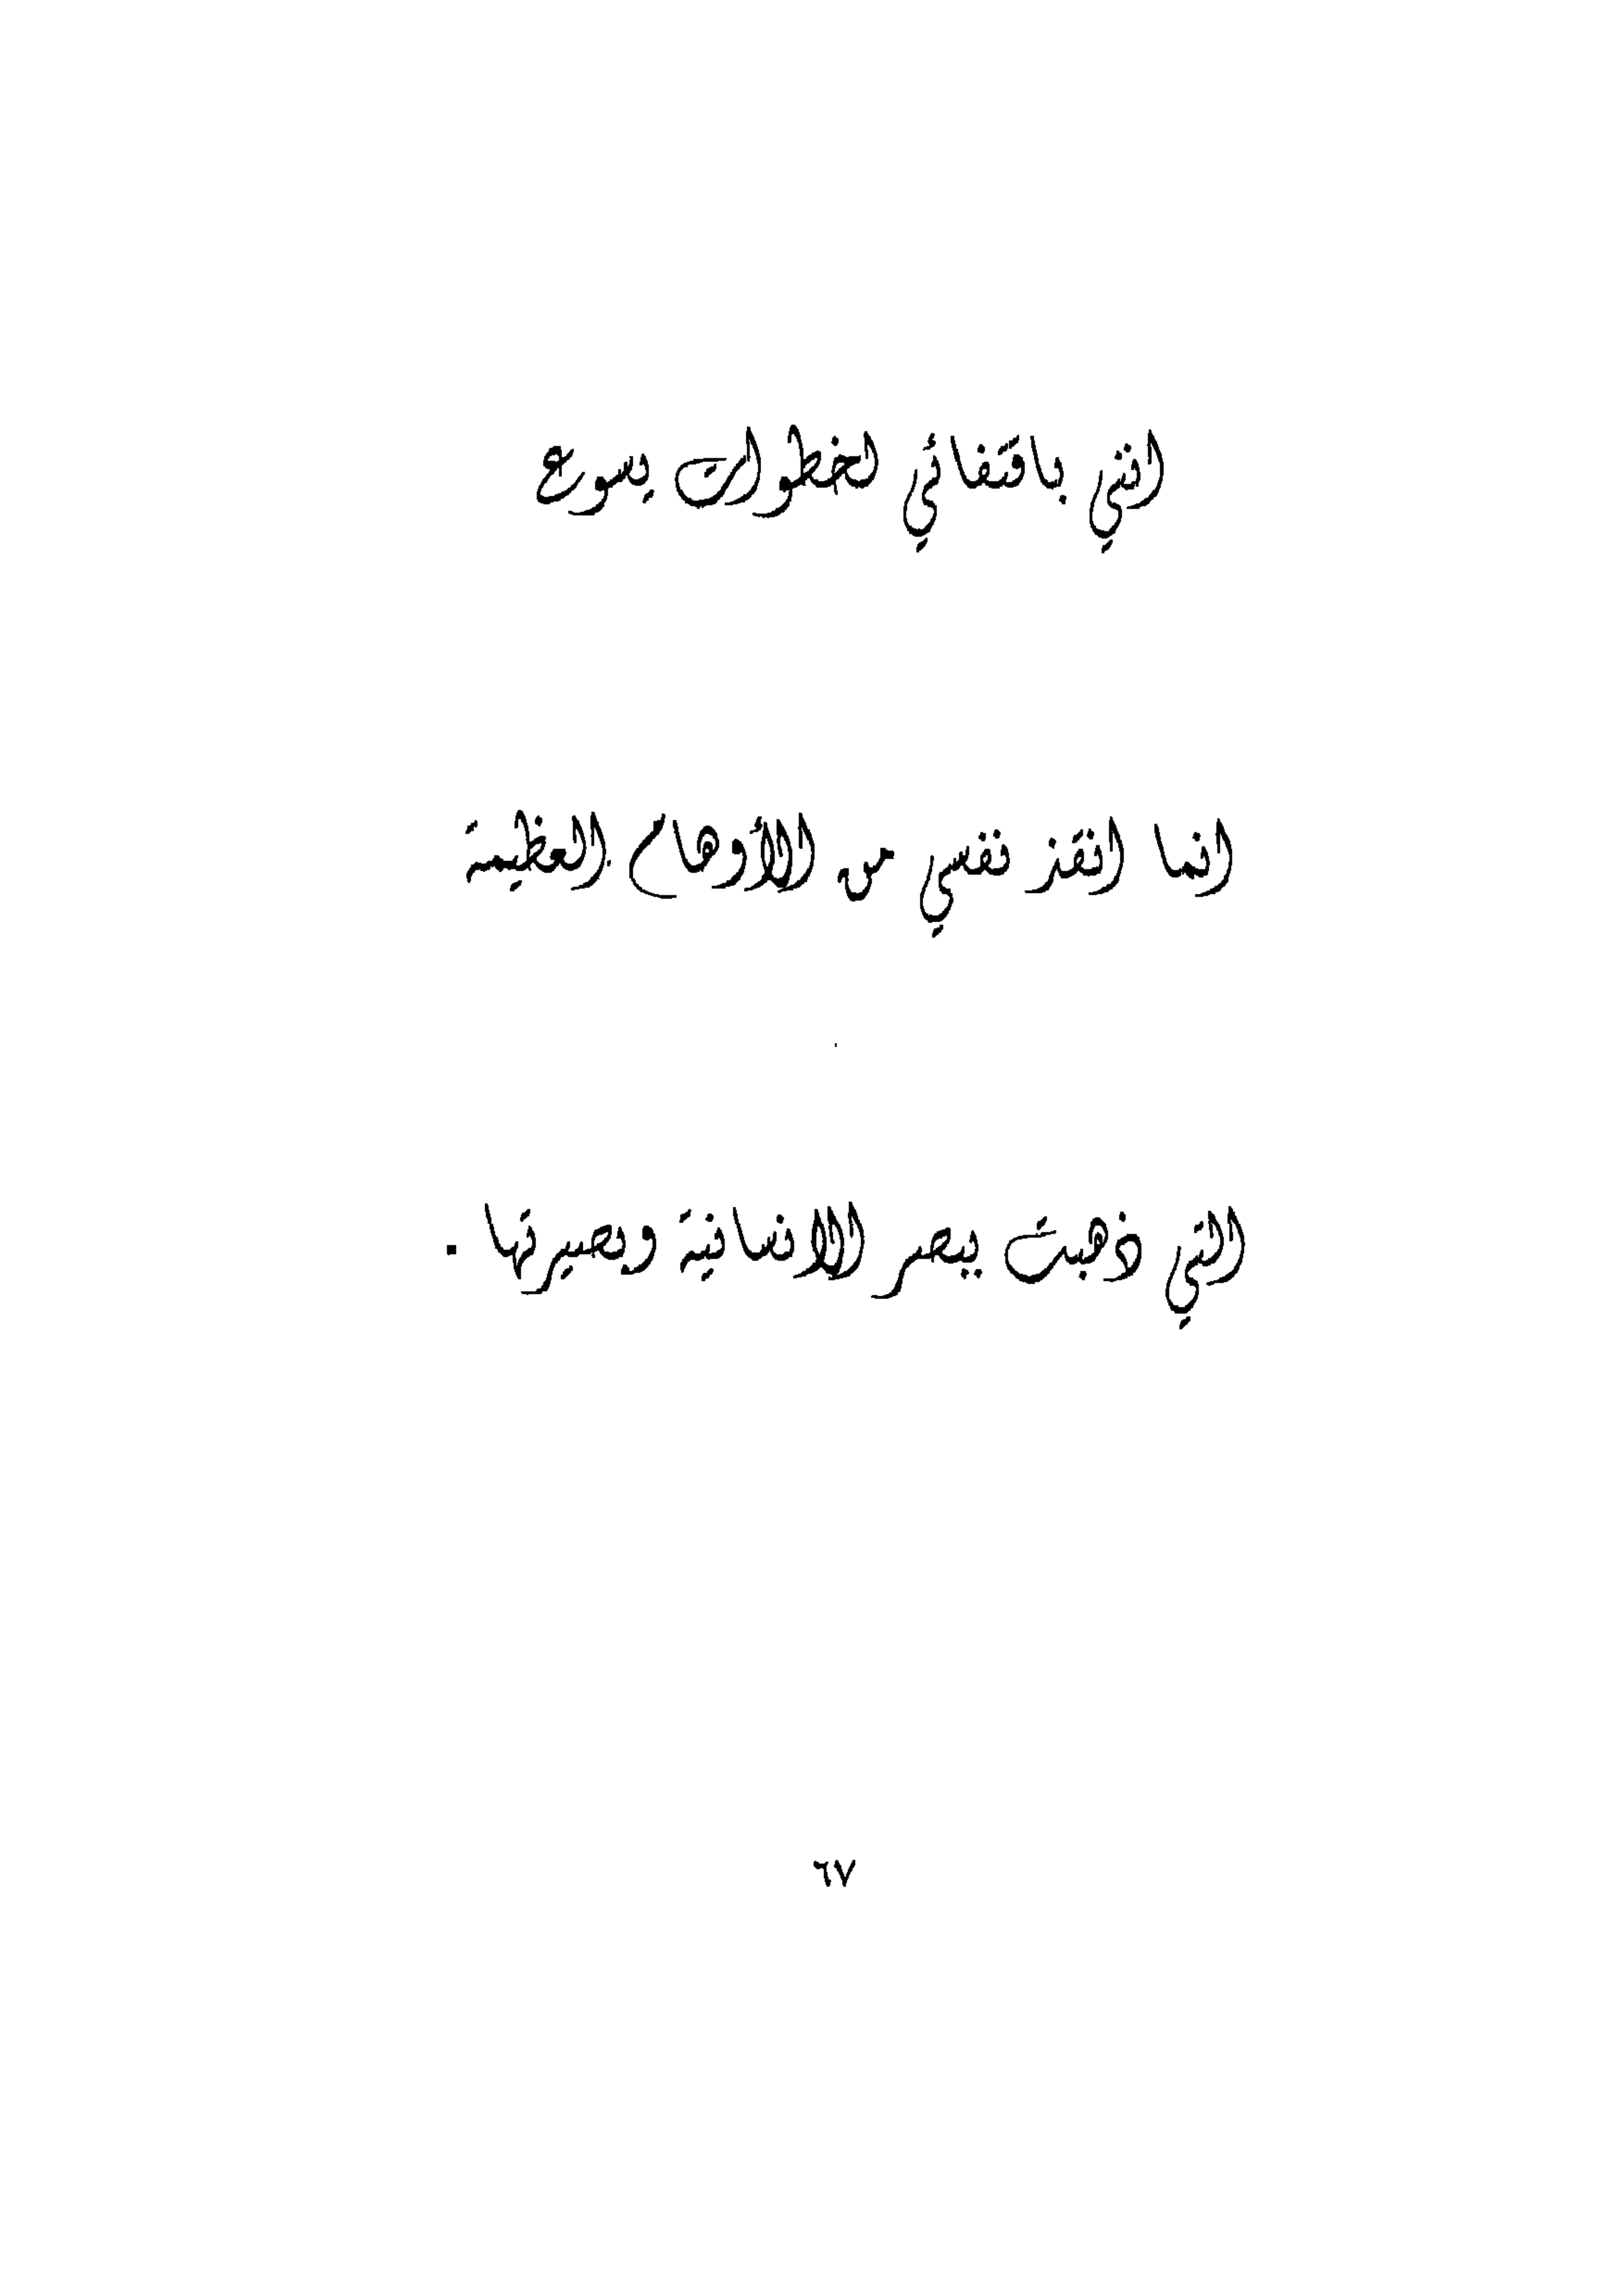 انني باقتفائي لخطوات يسوع
انما انقذ نفسي من الأوهام العظيمة
التي ذهبت ببصر الانسانية وبصيرتها .
٦٧